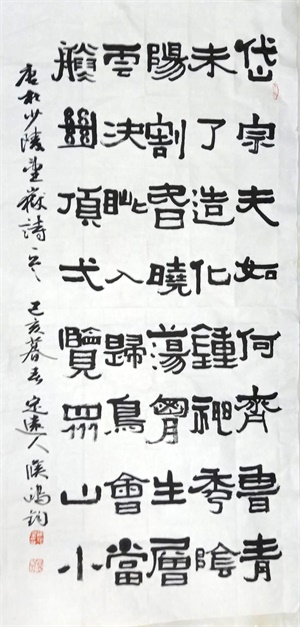 岱宗夫如何齊魯青
未了造化鍾神秀陰
陽割昏曉蕩胷生層
雲決眦入歸鳥會當
凌絕頂弌覽眾山小
唐杜少陵望嶽詩 己亥暮春 定遠人 侯鴻鈞